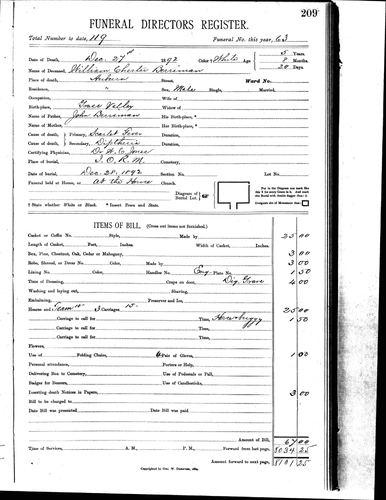 209
FUNERAL DIRECTORS REGISTER.
Total Number to date, 119 Funeral No. this year, 63
Date of Death, Dec. 27th 1892 Color † White Age 5 Years.
Name of Deceased, William Chester Berriman 8 Months.
Place of Death, Auburn 20 Days.
Residence, " Street, Ward No.
Occupation, Sex, Male Single, Married,
Birthplace, Grass Valley Wife of
Name of Father, John Berriman Widow of
Name of Mother, His Birth-place, *
Her Birth-place, *
Cause of death, Primary, Scarlet Fever Cause of Death,
Cause of death, Secondary, Diptheria Duration,
Certifying Physician, Dr. Residence,
Place of burial, I.O.R.M. Cemetery,
Date of burial, Dec. 28, 1892 Section No. Lot No.
Funeral held at House, or At the House Church.
Diagram of Burial Lot.
† State whether White or Black. * Insert Town and State.
ITEMS OF BILL. (Cross out items not furnished.)
Casket or Coffin No. Style, Made by 25 00
Length of Casket, Feet, Inches. Width of Casket, Inches.
Box, Pine, Chestnut, Oak, Cedar or Mahogany, 3 00
Robe, Shroud, or Dress No. Color, Made by 3 00
Lining No. Color, Handles No. Eng. Plate No. 1 50
Time of Dressing, Crape on door, Dig. Grave 4 00
Washing and laying out, Shaving,
Embalming, Preserver and Ice,
Hearse and Team 10- 3 Carriages 15- 25 00
Carriage to call for Time, 1 50
Carriage to call for Time,
Carriage to call for Time,
Flowers,
Use of Folding Chairs, Gloves, 1 00
Personal attendance, Porters or Help,
Delivering Box to Cemetery, Use of Pedestals or Pall,
Badges for Bearers, Use of Candlesticks,
Inserting death Notices in Papers, 3 00
Bill to be charged to
Date Bill was presented Date Bill was paid
Amount of Bill, 67 00
Time of Services, A. M., P. M., Forward from last page, 8034 25
Amount forward to next page, 8101 25